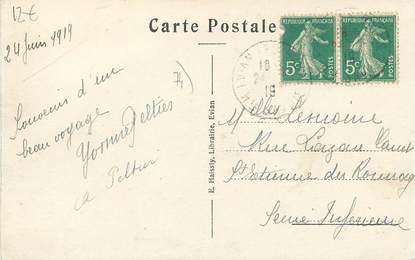 12€
Carte Postale
24 Juin 1919
74
Souvenir d'un
beau voyage
Yvonne Peltier
a Peltier
E. Haissly, Librairie, Evian
REPUBLIQUE FRANÇAISE
5c
POSTES
REPUBLIQUE FRANÇAISE
5c
POSTES
EVIAN
Mlles Lemoine
Rue Lazare Carnot
St Etienne du Rouvray
Seine Inférieure